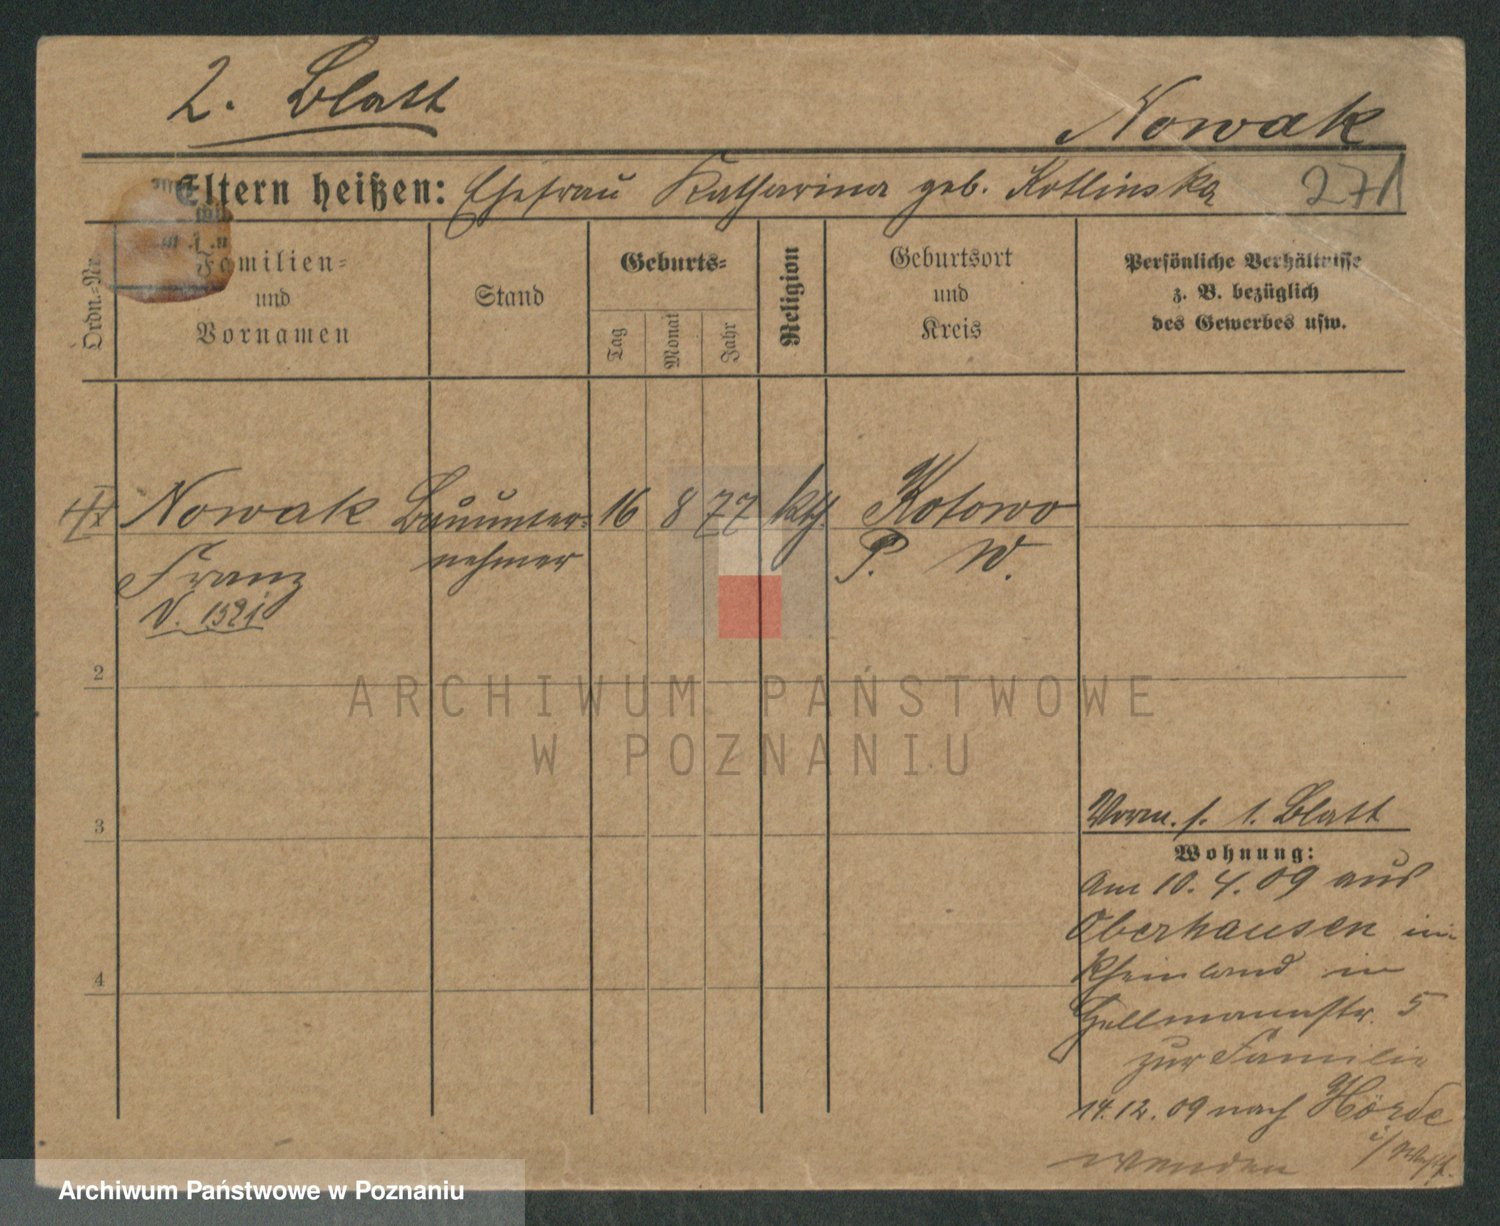 2. Blatt
Nowak
Eltern heißen: Ehefrau Katharina geb. Kotlinska
271
Ordn.-Nr.
Familien-
und
Vornamen
Stand
Geburts-
Tag
Monat
Jahr
Religion
Geburtsort
und
Kreis
Persönliche Verhältnisse
z. B. bezüglich
des Gewerbes usw.
Nowak Bauunter- 16 8 77 kth. Kotowo
Franz nehmer P. W.
V. 1521
2
ARCHIWUM PAŃSTWOWE
W POZNANIU
3
Vorm. s. 1. Blatt
Wohnung:
Am 10. 4. 09 aus
Oberhausen im
Rheinland in
5
zur Familie
4
14. 12. 09 nach Hörde
Archiwum Państwowe w Poznaniu